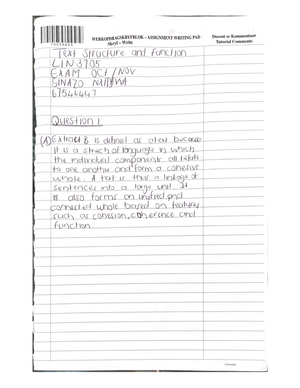 WERKOPDRAGSKRYFBLOK - ASSIGNMENT WRITING PAD
Skryf - Write
Dosent se Kommentaar
Tutorial Comments
Text Structure and Function
LIN3705
EXAM OCT/NOV
SINAZO
67546447
Question 1
(A) Extract B is defined as a text because
it is a strech of language in which
the individual components all relate
to one another and form a cohetive
whole. A text is thus a linkage of
sentences into a large unit. It
is also forms an unified and
connected whole based on features
such as cohesion, coherence and
function.